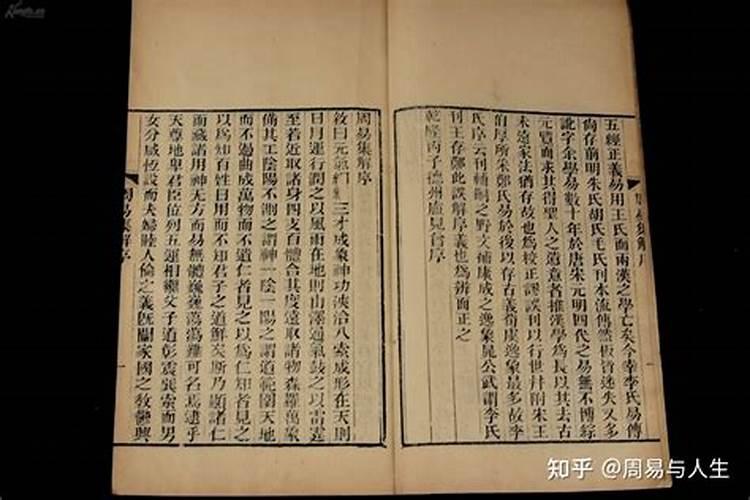 五經正義易用王氏而兩漢之學亡矣今幸李氏易傳
尙存前明朱氏胡氏毛氏刊本流傳然板皆迷失又多
訛字余學易數十年於唐宋元明四代之易無不博綜
元覽而求其得聖人之遺意者推漢學爲長以其去古
未遠家法猶存故也爲校正謬誤刊以行世幷附宋王
伯厚所采鄭氏易於後以存古義荀虞逸象最多故李
氏序云刊輔嗣之野文補康成之逸象晁公武謂李氏
刊王存鄭此誤解序義也爲辨而正之
乾隆丙子德州盧見曾序
周易集解序
周易集解序
敘曰元氣絪縕三才成象神功浹洽八索成形在天則
日月運行潤之以風雨在地則山澤通氣鼓之以雷霆
至若近取諸身四支百體合其度遠取諸物森羅萬象
備其工陰陽不測之謂神一陰一陽之謂道範圍天地
而不過曲成萬物而不遺仁者見之以爲仁知者見之
以爲知百姓日用而不知君子之道鮮矣斯乃顯諸仁
而藏諸用神无方而易無體巍巍蕩蕩難可名焉逮乎
天尊地卑君臣位列五運相繼父子道彰震巽索而男
女分咸恆設而夫婦睦人倫之義旣闡家國之敎鬱興
周易集解序
知乎 @周易与人生